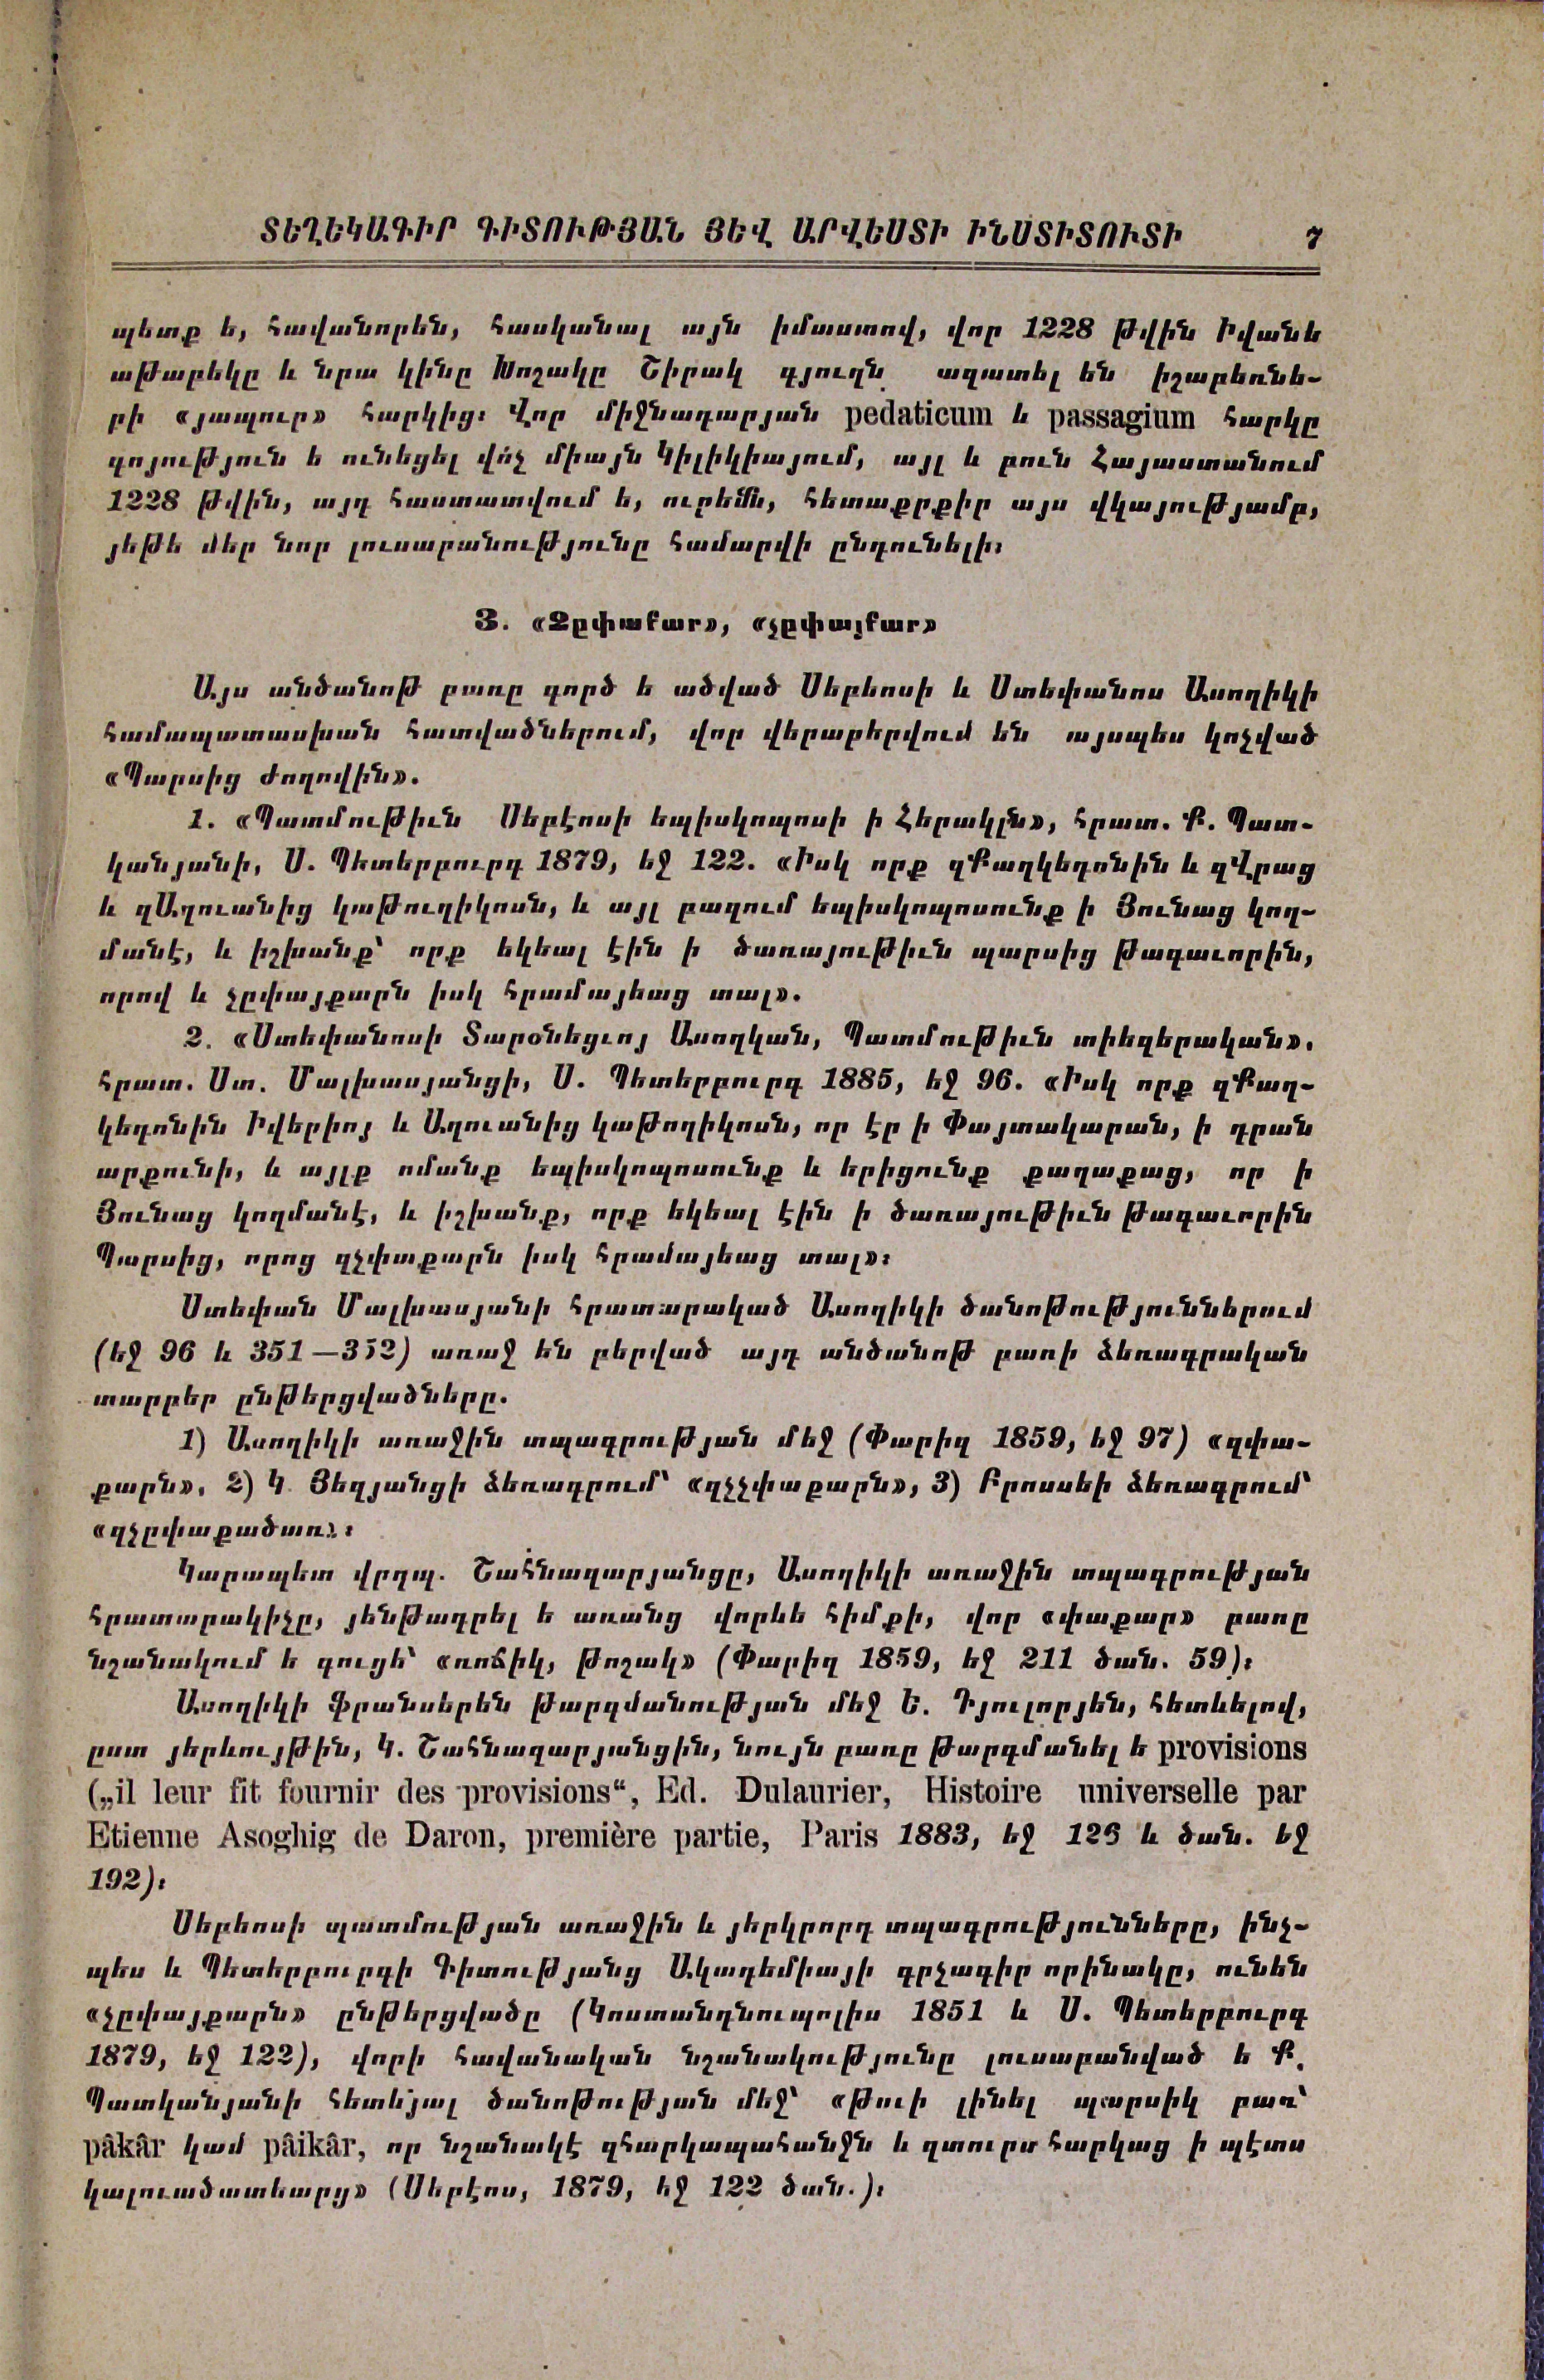 ՏԵՂԵԿԱԳԻՐ ԳԻՏՈՒԹՅԱՆ ՅԵՎ ԱՐՎԵՍՏԻ ԻՆՍՏԻՏՈՒՏԻ 7
պետք ե, հավանորեն, հասկանալ այն իմաստով, վոր 1228 թվին Իվանե
աթաբեկը և նրա կինը Խոշակը Շիրակ գյուղն ազատել են իշաբեռնե-
րի «յապուր» հարկից։ Վոր միջնադարյան pedaticum և passagium հարկը
գոյություն ե ունեցել վոչ միայն Կիլիկիայում, այլ և բուն Հայաստանում
1228 թվին, այդ հաստատվում ե, ուրեմն, հետաքրքիր այս վկայությամբ,
յեթե մեր նոր լուսաբանությունը համարվի ընդունելի։
3. «Չըփաքար», «չըփայքար»
Այս անծանոթ բառը գործ ե ածված Սեբեոսի և Ստեփանոս Ասողիկի
համապատասխան հատվածներում, վոր վերաբերվում են այսպես կոչված
«Պարսից ժողովին».
1. «Պատմութիւն Սեբէոսի եպիսկոպոսի ի Հերակլն», հրատ. Ք. Պատ-
կանյանի, Ս. Պետերբուրգ 1879, եջ 122. «Իսկ որք զՔաղկեդոնին և զՎրաց
և զԱղուանից կաթուղիկոսն, և այլ բազում եպիսկոպոսունք ի Յունաց կող-
մանէ, և իշխանք՝ որք եկեալ էին ի ծառայութիւն պարսից թագաւորին,
որով և չըփայքարն իսկ հրամայեաց տալ».
2. «Ստեփանոսի Տարօնեցւոյ Ասողկան, Պատմութիւն տիեզերական».
հրատ. Ստ. Մալխասյանցի, Ս. Պետերբուրգ 1885, եջ 96. «Իսկ որք զՔաղ-
կեդոնին Իվերիոյ և Աղուանից կաթողիկոսն, որ էր ի Փայտակարան, ի դրան
արքունի, և այլք ոմանք եպիսկոպոսունք և երիցունք քաղաքաց, որ ի
Յունաց կողմանէ, և իշխանք, որք եկեալ էին ի ծառայութիւն թագաւորին
Պարսից, որոց զչփաքարն իսկ հրամայեաց տալ»։
Ստեփան Մալխասյանի հրատարակած Ասողիկի ծանոթություններում
(եջ 96 և 351—352) առաջ են բերված այդ անծանոթ բառի ձեռագրական
տարբեր ընթերցվածները.
1) Ասողիկի առաջին տպագրության մեջ (Փարիզ 1859, եջ 97) «զփա-
քարն». 2) Կ. Յեզյանցի ձեռագրում՝ «զչչփաքարն», 3) Բրոսսեի ձեռագրում՝
«զչըփաքածառ»։
Կարապետ վրդպ. Շահնազարյանցը, Ասողիկի առաջին տպագրության
հրատարակիչը, յենթադրել ե առանց վորևե հիմքի, վոր «փաքար» բառը
նշանակում ե գուցե՝ «ռոճիկ, թոշակ» (Փարիզ 1859, եջ 211 ծան. 59)։
Ասողիկի ֆրանսերեն թարգմանության մեջ Ե. Դյուլորյեն, հետևելով,
ըստ յերևույթին, Կ. Շահնազարյանցին, նույն բառը թարգմանել ե provisions
(„il leur fit fournir des provisions“, Ed. Dulaurier, Histoire universelle par
Etienne Asoghig de Daron, première partie, Paris 1883, եջ 126 և ծան. եջ
192)։
Սեբեոսի պատմության առաջին և յերկրորդ տպագրությունները, ինչ-
պես և Պետերբուրգի Գիտությանց Ակադեմիայի գրչագիր որինակը, ունեն
«չըփայքարն» ընթերցվածը (Կոստանդնուպոլիս 1851 և Ս. Պետերբուրգ
1879, եջ 122), վորի հավանական նշանակությունը լուսաբանված ե Ք.
Պատկանյանի հետևյալ ծանոթության մեջ՝ «Թուի լինել պարսիկ բառ՝
pâkâr կամ pâikâr, որ նշանակէ զհարկապահանջն և զտուրս հարկաց ի պէտս
կալուածատեարց» (Սեբէոս, 1879, եջ 122 ծան.)։